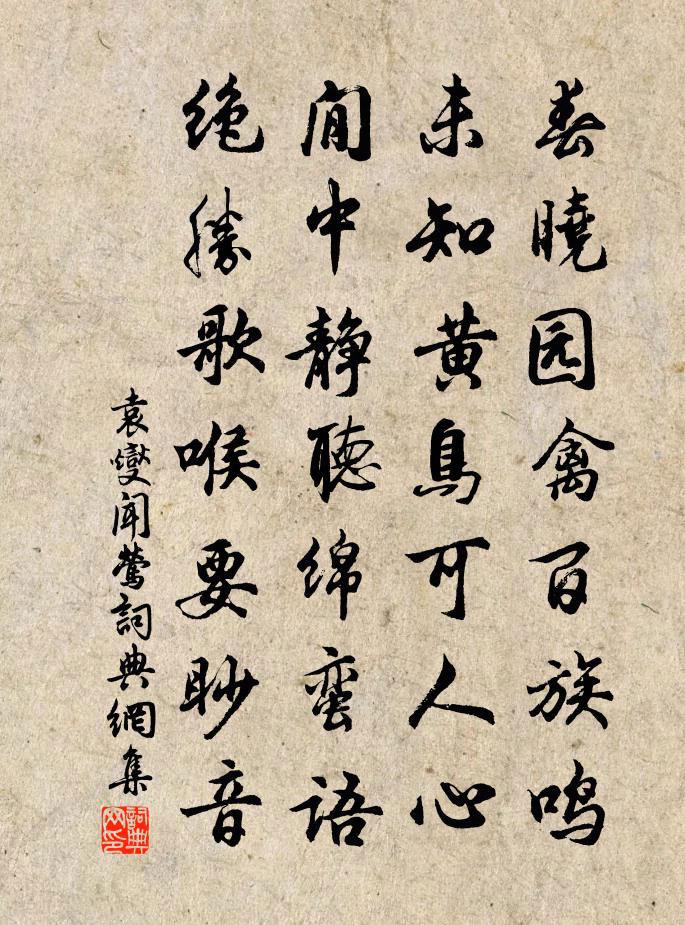 春曉园禽百族鸣
未知黄鳥可人心
閒中静聽綿蛮语
绝勝歌喉要眇音
袁燮闻莺詞典網集
詞典网印